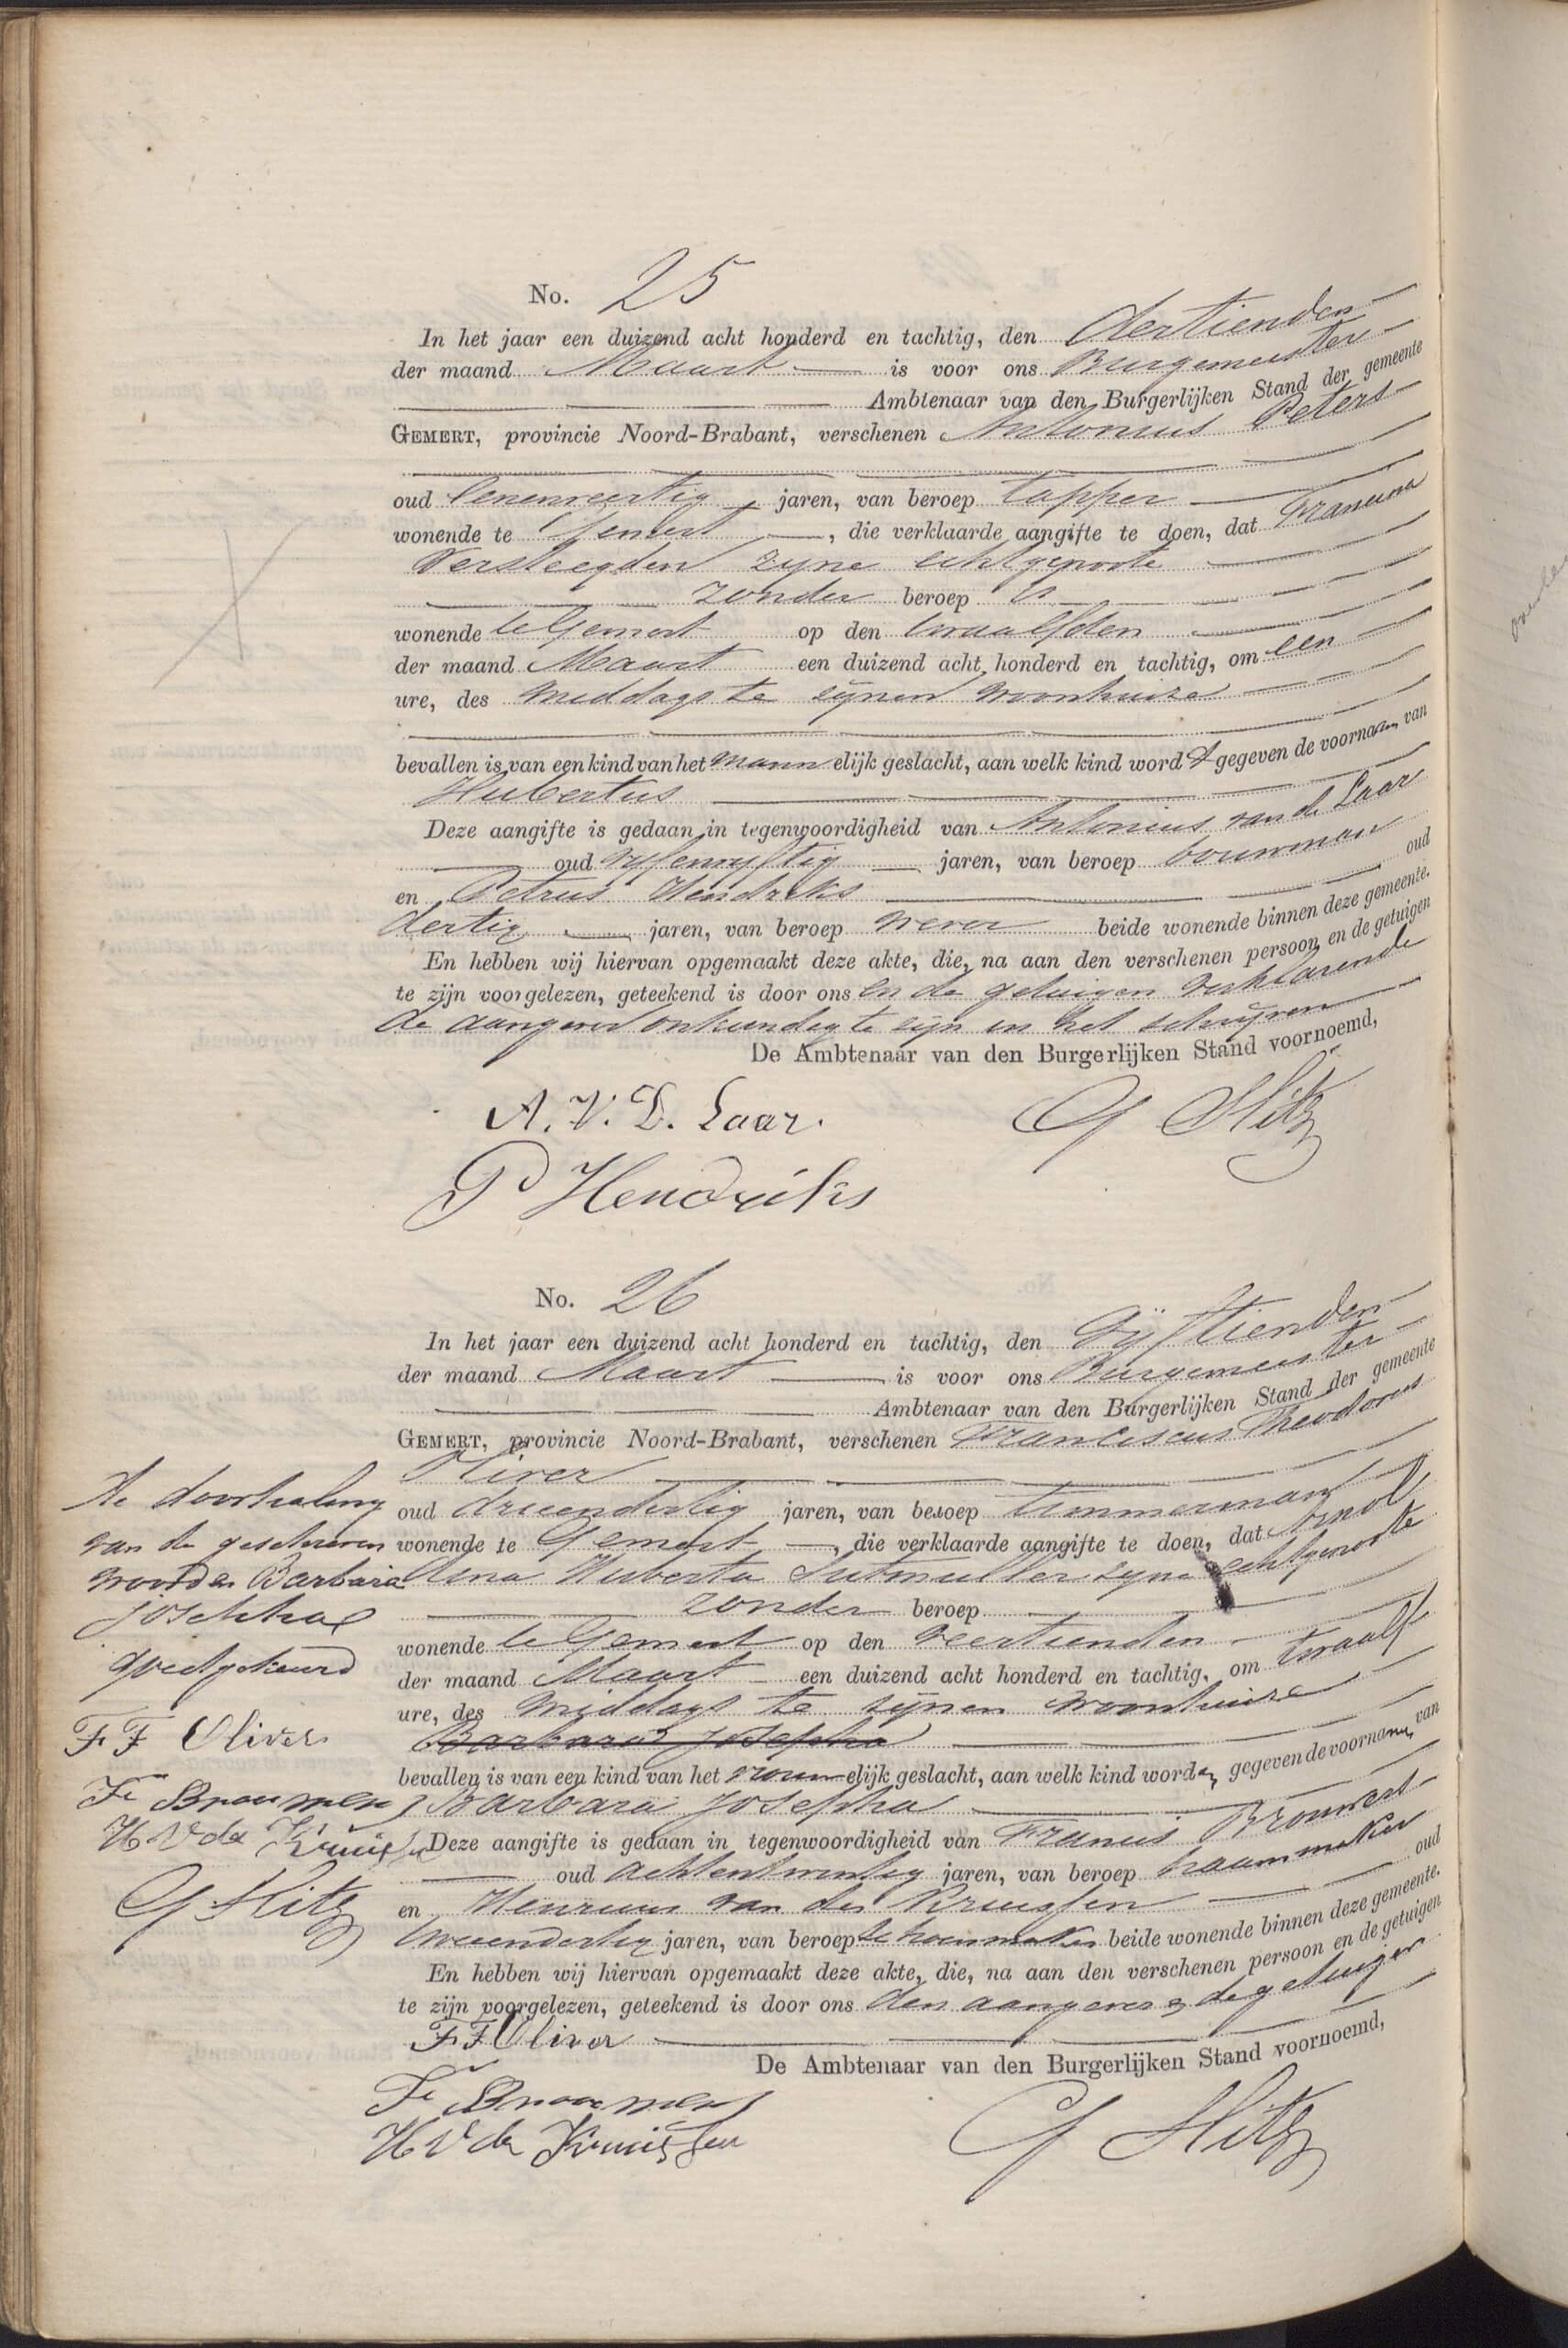 No. 25
In het jaar een duizend acht honderd en tachtig, den dertienden
der maand Maart is voor ons Burgemeester
Ambtenaar van den Burgerlijken Stand der gemeente
GEMERT, provincie Noord-Brabant, verschenen Antonius Peters
oud eenenveertig jaren, van beroep tapper
wonende te Gemert, die verklaarde aangifte te doen, dat Francina
Versteegden zyne echtgenoote
zonder beroep
wonende te Gemert op den twaalfden
der maand Maart een duizend acht honderd en tachtig, om een
ure, des middags te zijnen woonhuize
bevallen is van een kind van het mannelijk geslacht, aan welk kind wordt gegeven de voornaam van
Hubertus
Deze aangifte is gedaan in tegenwoordigheid van Antonius van de Laar
oud vyfenvyftig jaren, van beroep bouwman
en Petrus Hendriks oud
dertig jaren, van beroep wever beide wonende binnen deze gemeente.
En hebben wij hiervan opgemaakt deze akte, die, na aan den verschenen persoon en de getuigen
te zijn voorgelezen, geteekend is door ons en de getuigen verklarende
de aangever onkundig te zijn in het schrijven
De Ambtenaar van den Burgerlijken Stand voornoemd,
A. V. D. Laar.
P Hendriks
No. 26
In het jaar een duizend acht honderd en tachtig, den Vijftienden
der maand Maart is voor ons Burgemeester
Ambtenaar van den Burgerlijken Stand der gemeente
GEMERT, provincie Noord-Brabant, verschenen Franciscus Theodorus
Oliver
oud drieendertig jaren, van beroep timmerman
wonende te Gemert, die verklaarde aangifte te doen, dat Arnol
dina Huberta Sutmuller zyne echtgenoote
zonder beroep
wonende te Gemert op den veertienden
der maand Maart een duizend acht honderd en tachtig, om twaalf
ure, des middags te zijnen woonhuize
Barbara Josepha
bevallen is van een kind van het vrouwelijk geslacht, aan welk kind worden gegeven de voornamen van
Barbara Josepha
Deze aangifte is gedaan in tegenwoordigheid van Francis Brouwers
oud achtentwintig jaren, van beroep haammaker
en Henricus van der Kruyssen oud
tweeendertig jaren, van beroep schoenmaker beide wonende binnen deze gemeente.
En hebben wij hiervan opgemaakt deze akte, die, na aan den verschenen persoon en de getuigen
te zijn voorgelezen, geteekend is door ons den aangever en de getuigen
F. F Oliver
De Ambtenaar van den Burgerlijken Stand voornoemd,
Fr Brouwers
H V der Kruissen
De doorhaling
van de geschreven
woorden Barbara
Josepha
goedgekeurd
F. F Oliver
Fr Brouwers
H V der Kruissen